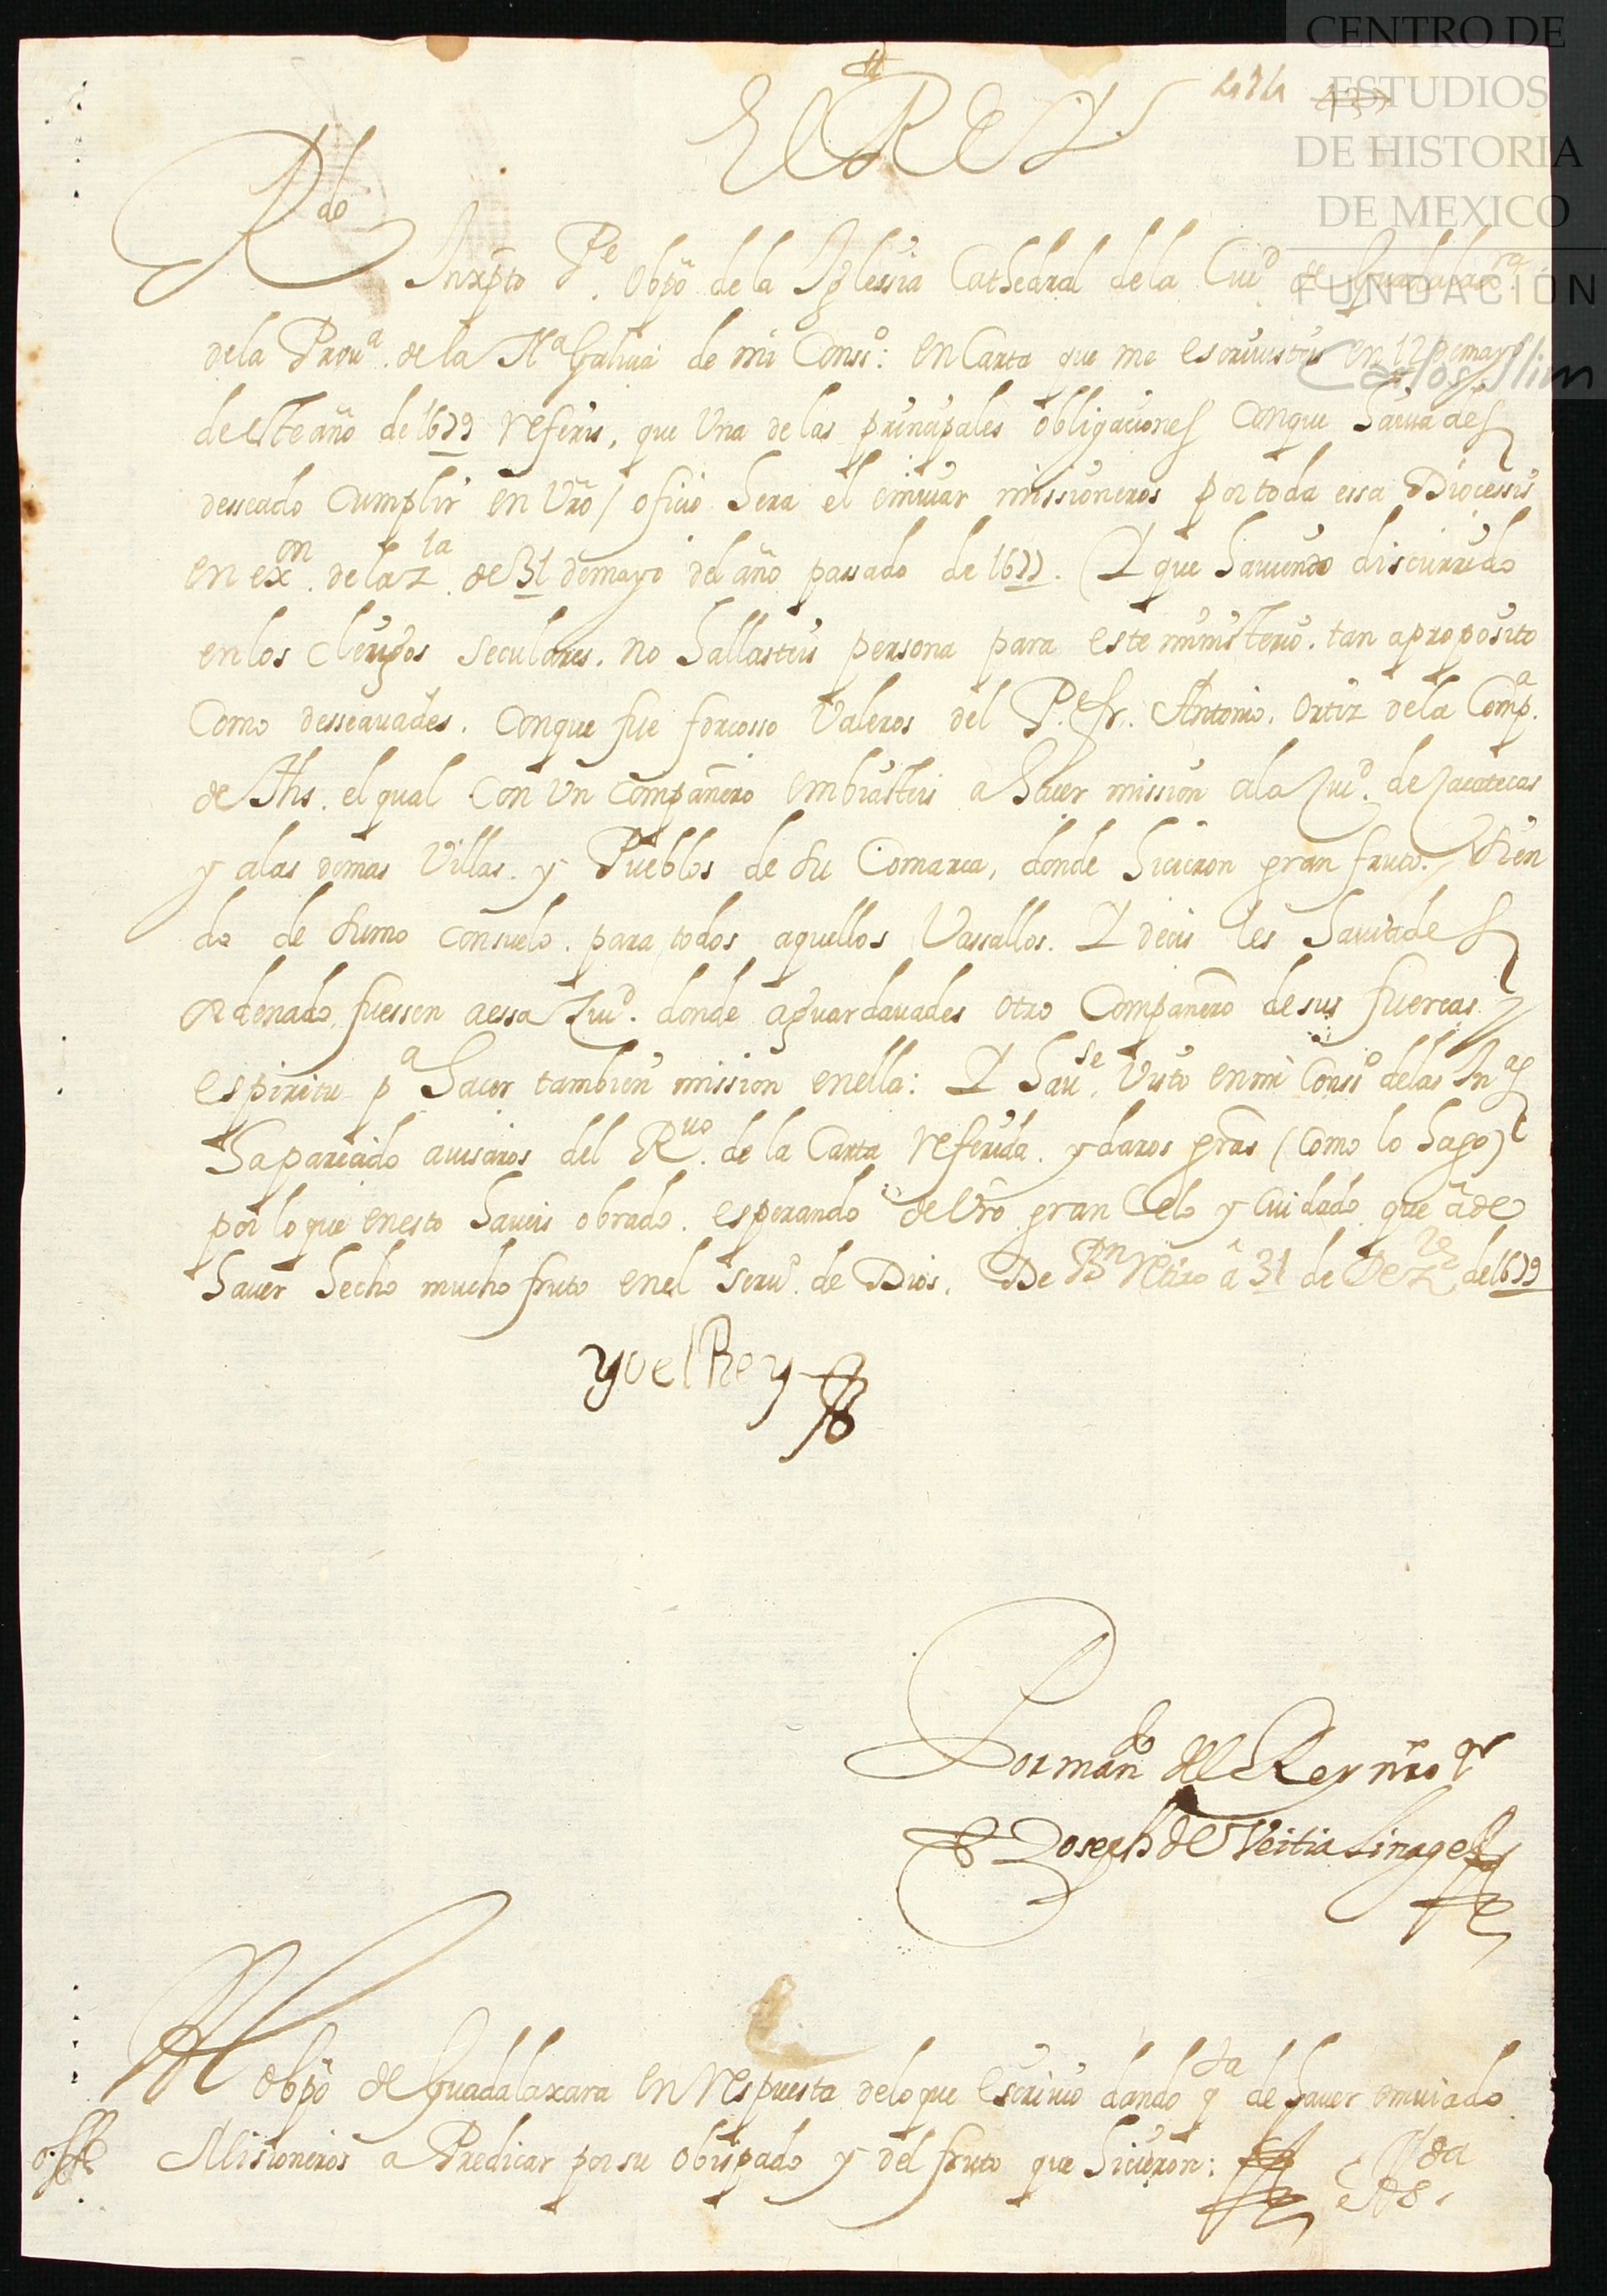 CENTRO DE
ESTUDIOS
DE HISTORIA
DE MEXICO
FUNDACIÓN
Carlos Slim
El Rey
Rdo
Inxpto Pe. Obpo de la Iglessia Cathedral de la Ciud de Guadalaxra
de la Prova. de la Na Galicia de mi Consso: en Carta que me escrivisteis en 12 de mayo
deste año de 1679 referis, que Una de las principales obligaciones conque haviades
desseado Cumplir en Vro oficio hera el enviar missioneros por toda essa Diocessis
en exon. de la z.la de 31 de mayo del año passado de 1677. Y que haviendo discurrido
en los Clerigos Seculares. no hallasteis persona para este ministerio. tan aproposito
Como desseavades. Conque fue forcosso Valeros del Pe. fr. Antonio. Ortiz de la Compa.
de Jhs. el qual Con Un Compañero embiasteis a hacer mission a la Ziud. de Zacatecas
y a las demas Villas. y Pueblos de su Comarca, donde hicieron gran fruto. Sien
do de sumo consuelo. para todos aquellos Vassallos. Y decis les haviades
ordenado fuessen a essa Ziud. donde aguardavades otro Compañero de sus fuercas y
espiritu pa hacer tambien mission en ella: Y havse. Visto en mi Consso de las Inas
ha parecido avisaros del Rvo. de la Carta referida. y daros gras (como lo hago)
por lo que en esto haveis obrado. esperando de Vro gran Celo y Cuidado. que a de
haver hecho mucho fruto en el servo. de Dios. De Bn Retiro a 31 de Dezre de 1679
Yo el Rey
Por mando del Rey nro sr
D Joseph de Veitia Linage
Al obpo de Guadalaxara en respuesta de lo que escrivio dando qta de haver enviado
Misioneros a Predicar por su obispado y del fruto que hicieron: